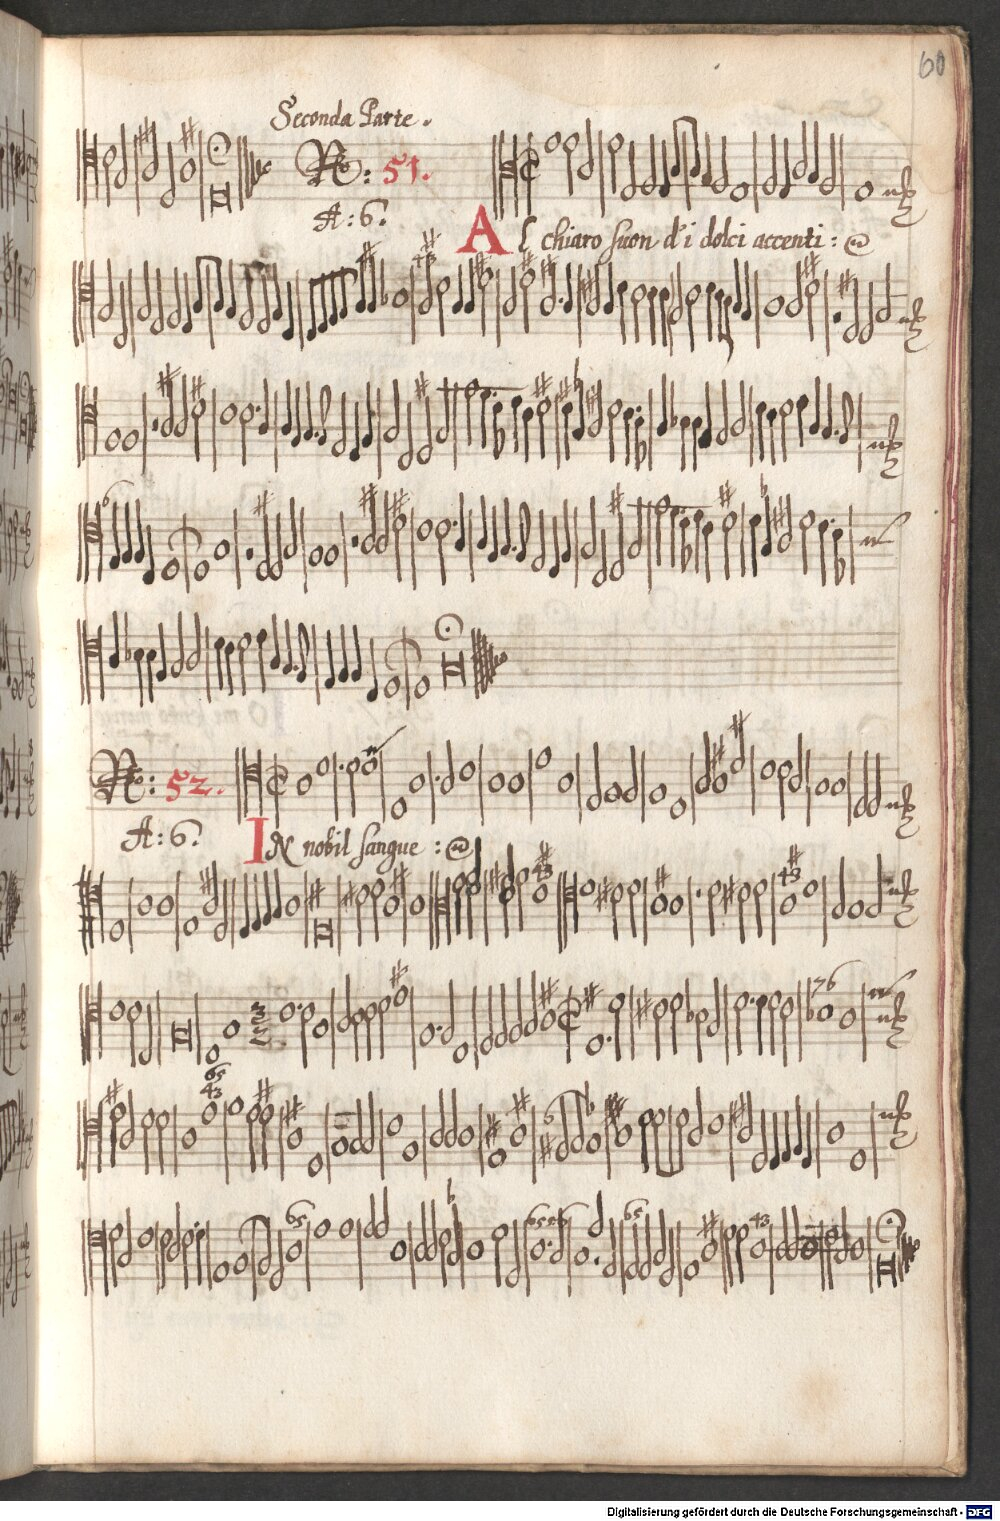 60
Seconda Parte.
No: 51.
A: 6.
Al chiaro suon d'i dolci accenti:
No: 52.
A: 6.
IN nobil sangue:
Digitalisierung gefördert durch die Deutsche Forschungsgemeinschaft - DFG